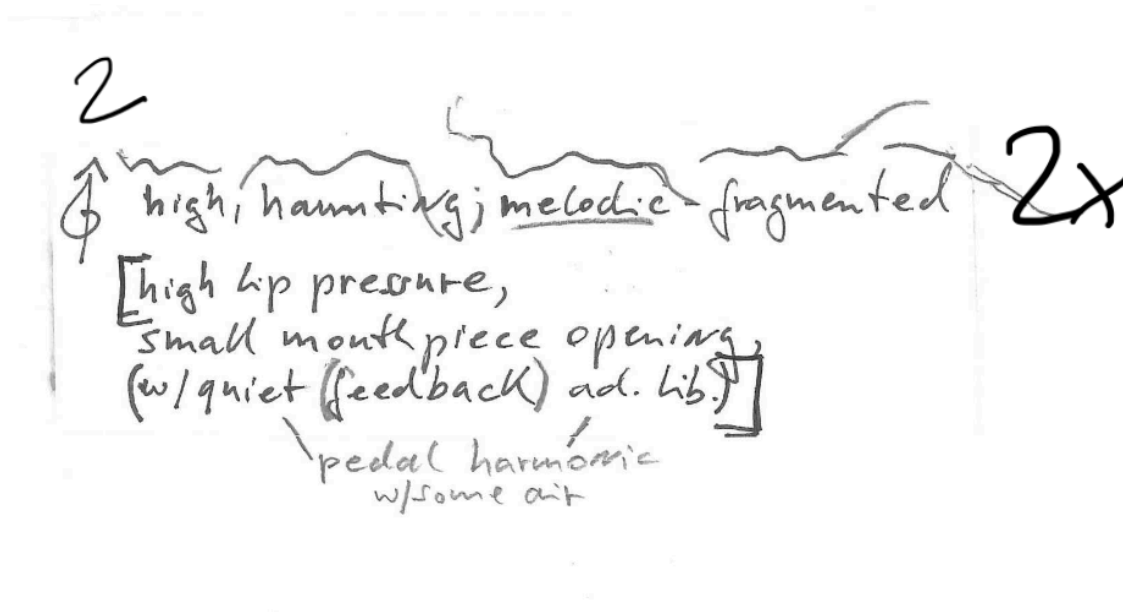 2
high, haunting; melodic - fragmented 2x
[high lip pressure,
small mouthpiece opening,
(w/quiet (feedback) ad. lib.)]
pedal harmonic
w/some air